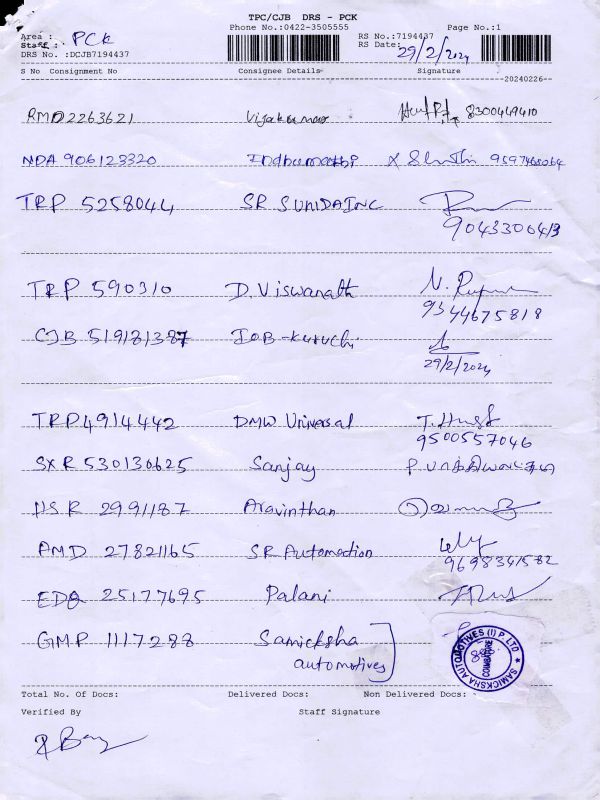 TPC/CJB DRS - PCK
Phone No.:0422-3505555 Page No.:1
Area : PCK RS No.:7194437
Staff : RS Date: 29/2/2024
DRS No. :DCJB7194437
S No Consignment No Consignee Details Signature
20240226
RMD2263621 Vijakumar 8300449410
NDA 906123320 Indhumathi 9597468064
TRP 5258044 SR SUNDAINC
9043300413
TRP 590310 D. Viswanath
9344675818
CJB 519181387 IOB-Kuruchi
29/2/2024
TRP4914442 DMW Universal
9500557046
SXR 530130625 Sanjay
HSR 2991187 Aravinthan
AMD 27821165 SR Automation
9698341582
EDQ 25177695 Palani
GMP 1117288 Samicksha
automotives
SAMICKSHA AUTOMOTIVES (I) P LTD
COIMBATORE
Total No. Of Docs: Delivered Docs: Non Delivered Docs:
Verified By Staff Signature